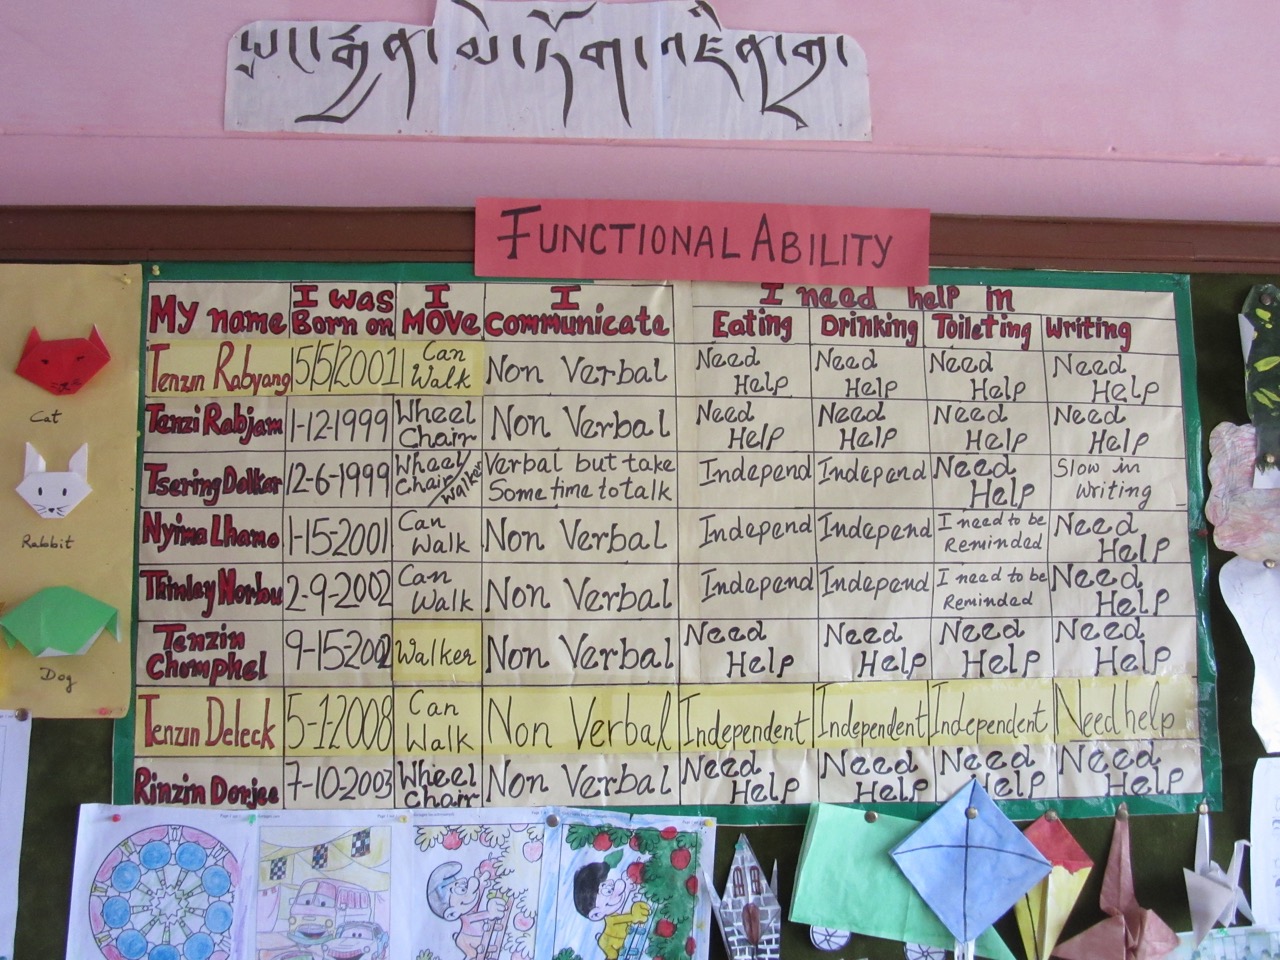 FUNCTIONAL ABILITY
My name | I was Born on | I Move | I Communicate | I need help in
Eating | Drinking | Toileting | Writing
Tenzin Rabyang | 5/5/2001 | Can Walk | Non Verbal | Need Help | Need Help | Need Help | Need Help
Tenzi Rabjam | 1-12-1999 | Wheel Chair | Non Verbal | Need Help | Need Help | Need Help | Need Help
Tsering Dolkar | 12-6-1999 | Wheel Chair/Walker | Verbal but take Some time to talk | Independ | Independ | Need Help | Slow in writing
Nyima Lhamo | 1-15-2001 | Can Walk | Non Verbal | Independ | Independ | I need to be Reminded | Need Help
Thinlay Norbu | 2-9-2002 | Can Walk | Non Verbal | Independ | Independ | I need to be Reminded | Need Help
Tenzin Chomphel | 9-15-2002 | Walker | Non Verbal | Need Help | Need Help | Need Help | Need Help
Tenzin Deleck | 5-1-2008 | Can Walk | Non Verbal | Independent | Independent | Independent | Need help
Rinzin Dorjee | 7-10-2003 | Wheel Chair | Non Verbal | Need Help | Need Help | Need Help | Need Help
Cat
Rabbit
Dog